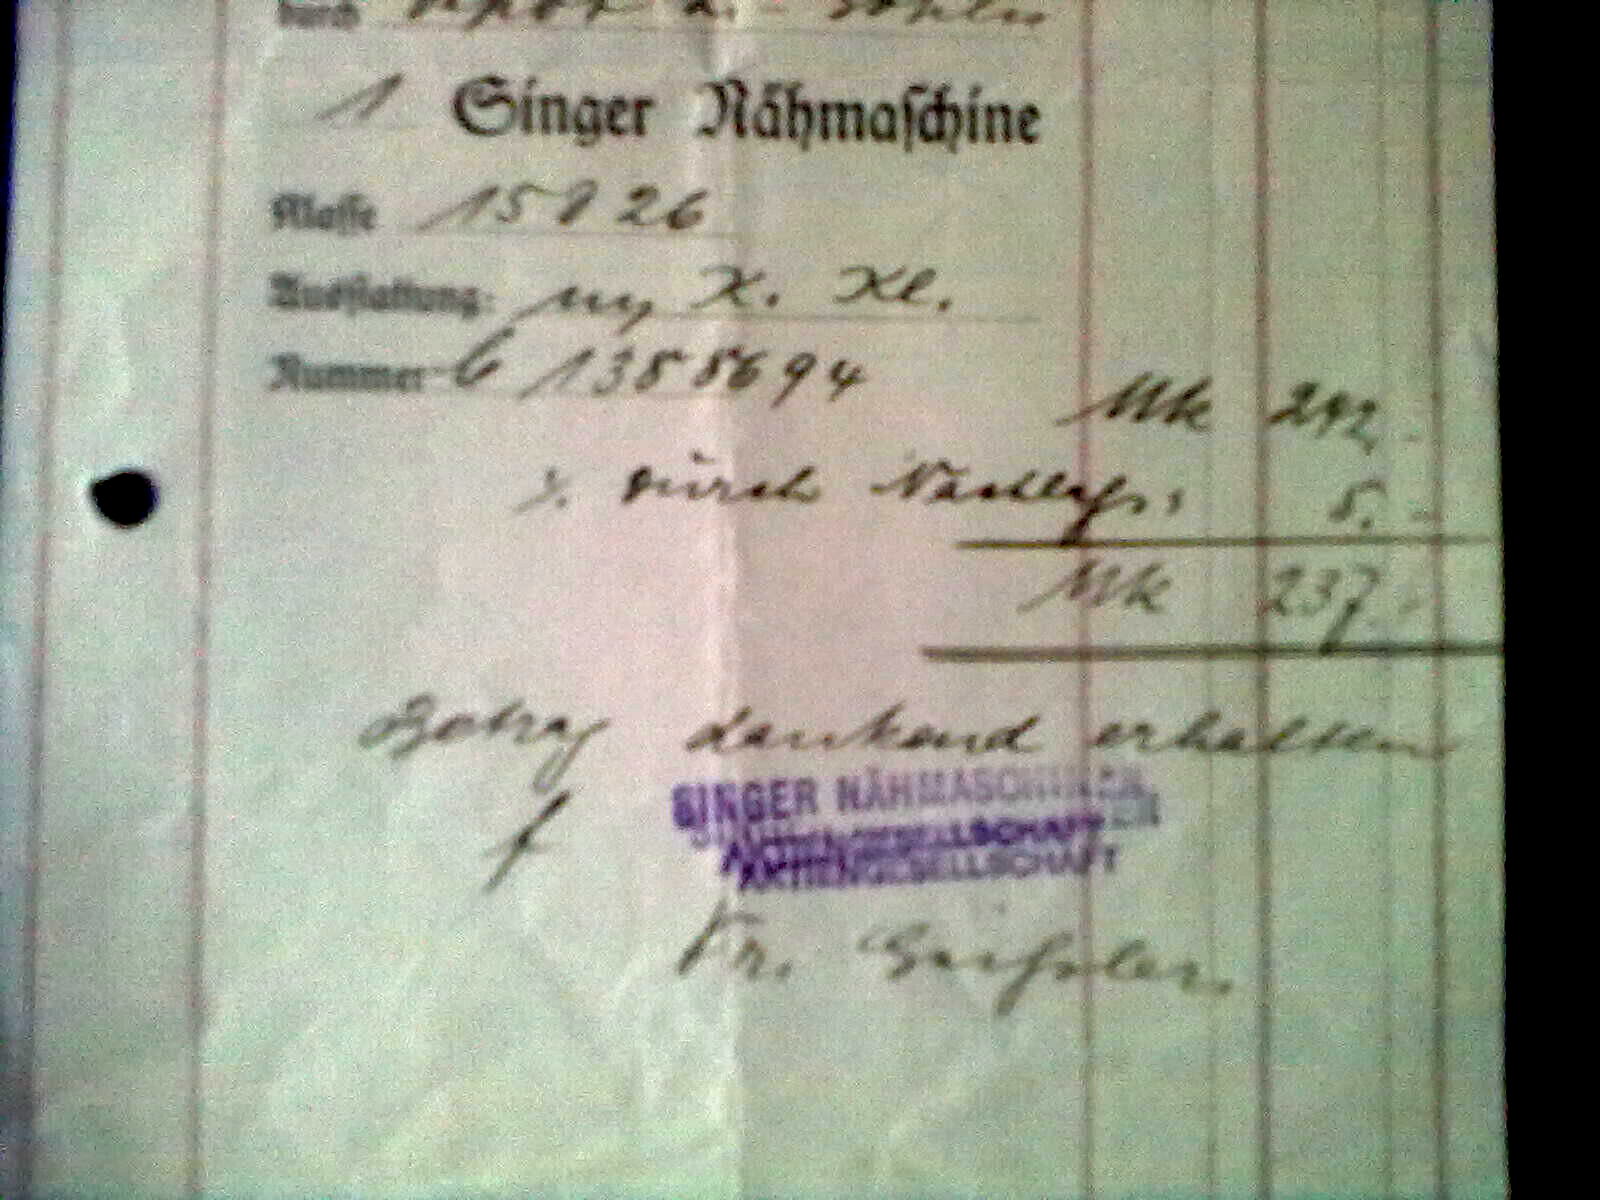 durch
1. Singer Nähmaschine
Klasse 15 26
Ausstattung: K. Kl.
Nummer C 1388694
Mk 242.-
durch Nachlass: 5.-
Mk 237.-
Betrag dankend erhalten
SINGER NÄHMASCHINEN
AKTIENGESELLSCHAFT
AKTIENGESELLSCHAFT
Fr. Geissler.